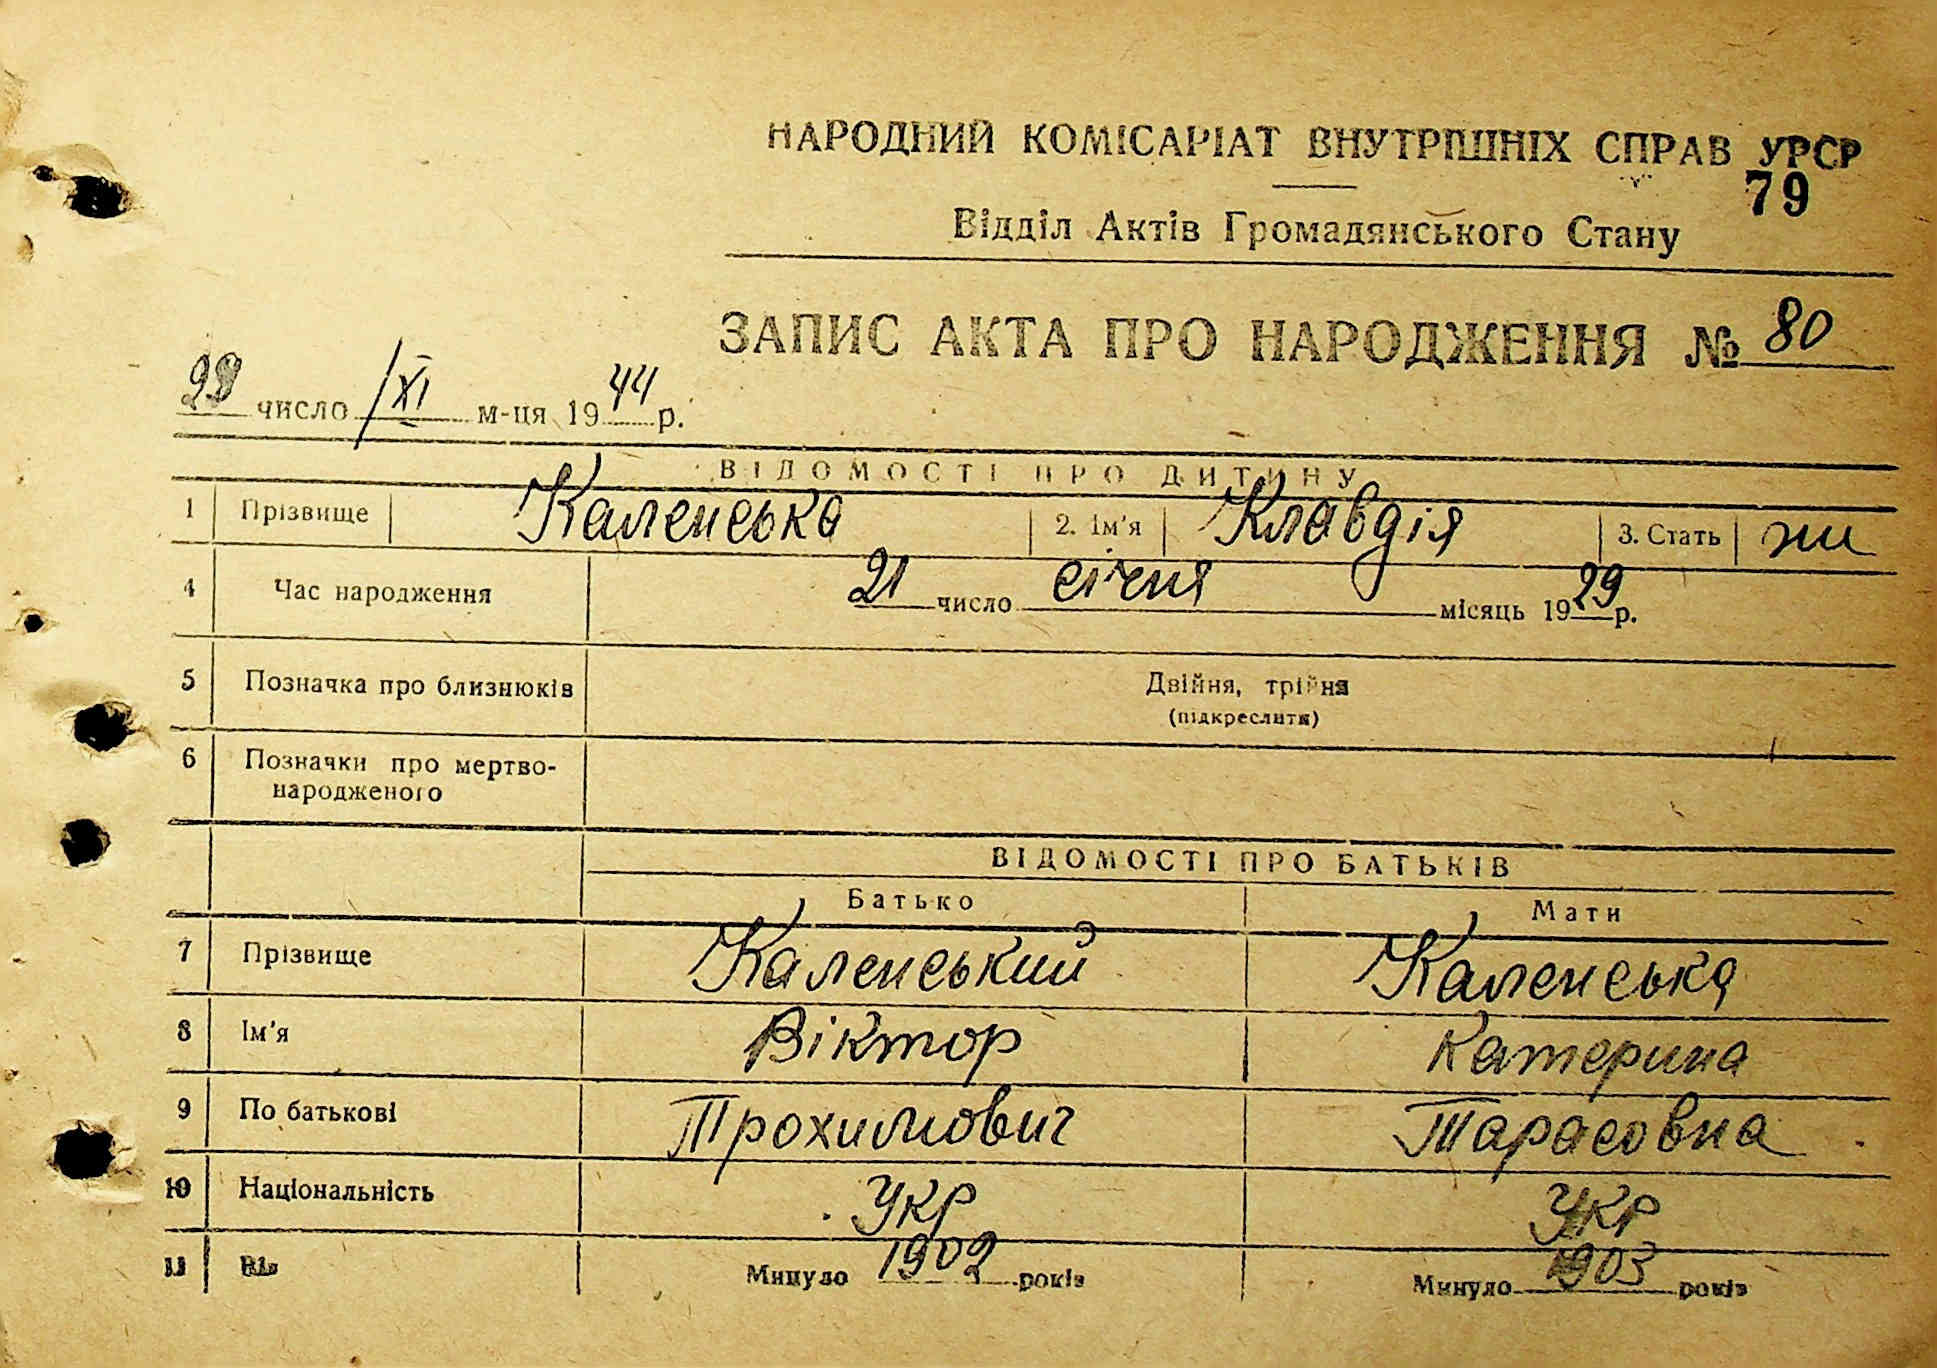 НАРОДНИЙ КОМІСАРІАТ ВНУТРІШНІХ СПРАВ УРСР
79
Відділ Актів Громадянського Стану
ЗАПИС АКТА ПРО НАРОДЖЕННЯ № 80
число XI м-ця 1944 р.
ВІДОМОСТІ ПРО ДИТИНУ
1 Прізвище Каленська 2. Ім'я Клавдія 3. Стать
4 Час народження 21 число січня місяць 1929 р.
5 Позначка про близнюків Двійня, трійня
(підкреслити)
6 Позначки про мертво-
народженого
ВІДОМОСТІ ПРО БАТЬКІВ
Батько Мати
7 Прізвище Каленський Каленська
8 Ім'я Віктор Катерина
9 По батькові Трохимович Тарасовна
10 Національність Укр Укр
11 Вік Минуло 1902 років Минуло 1903 років